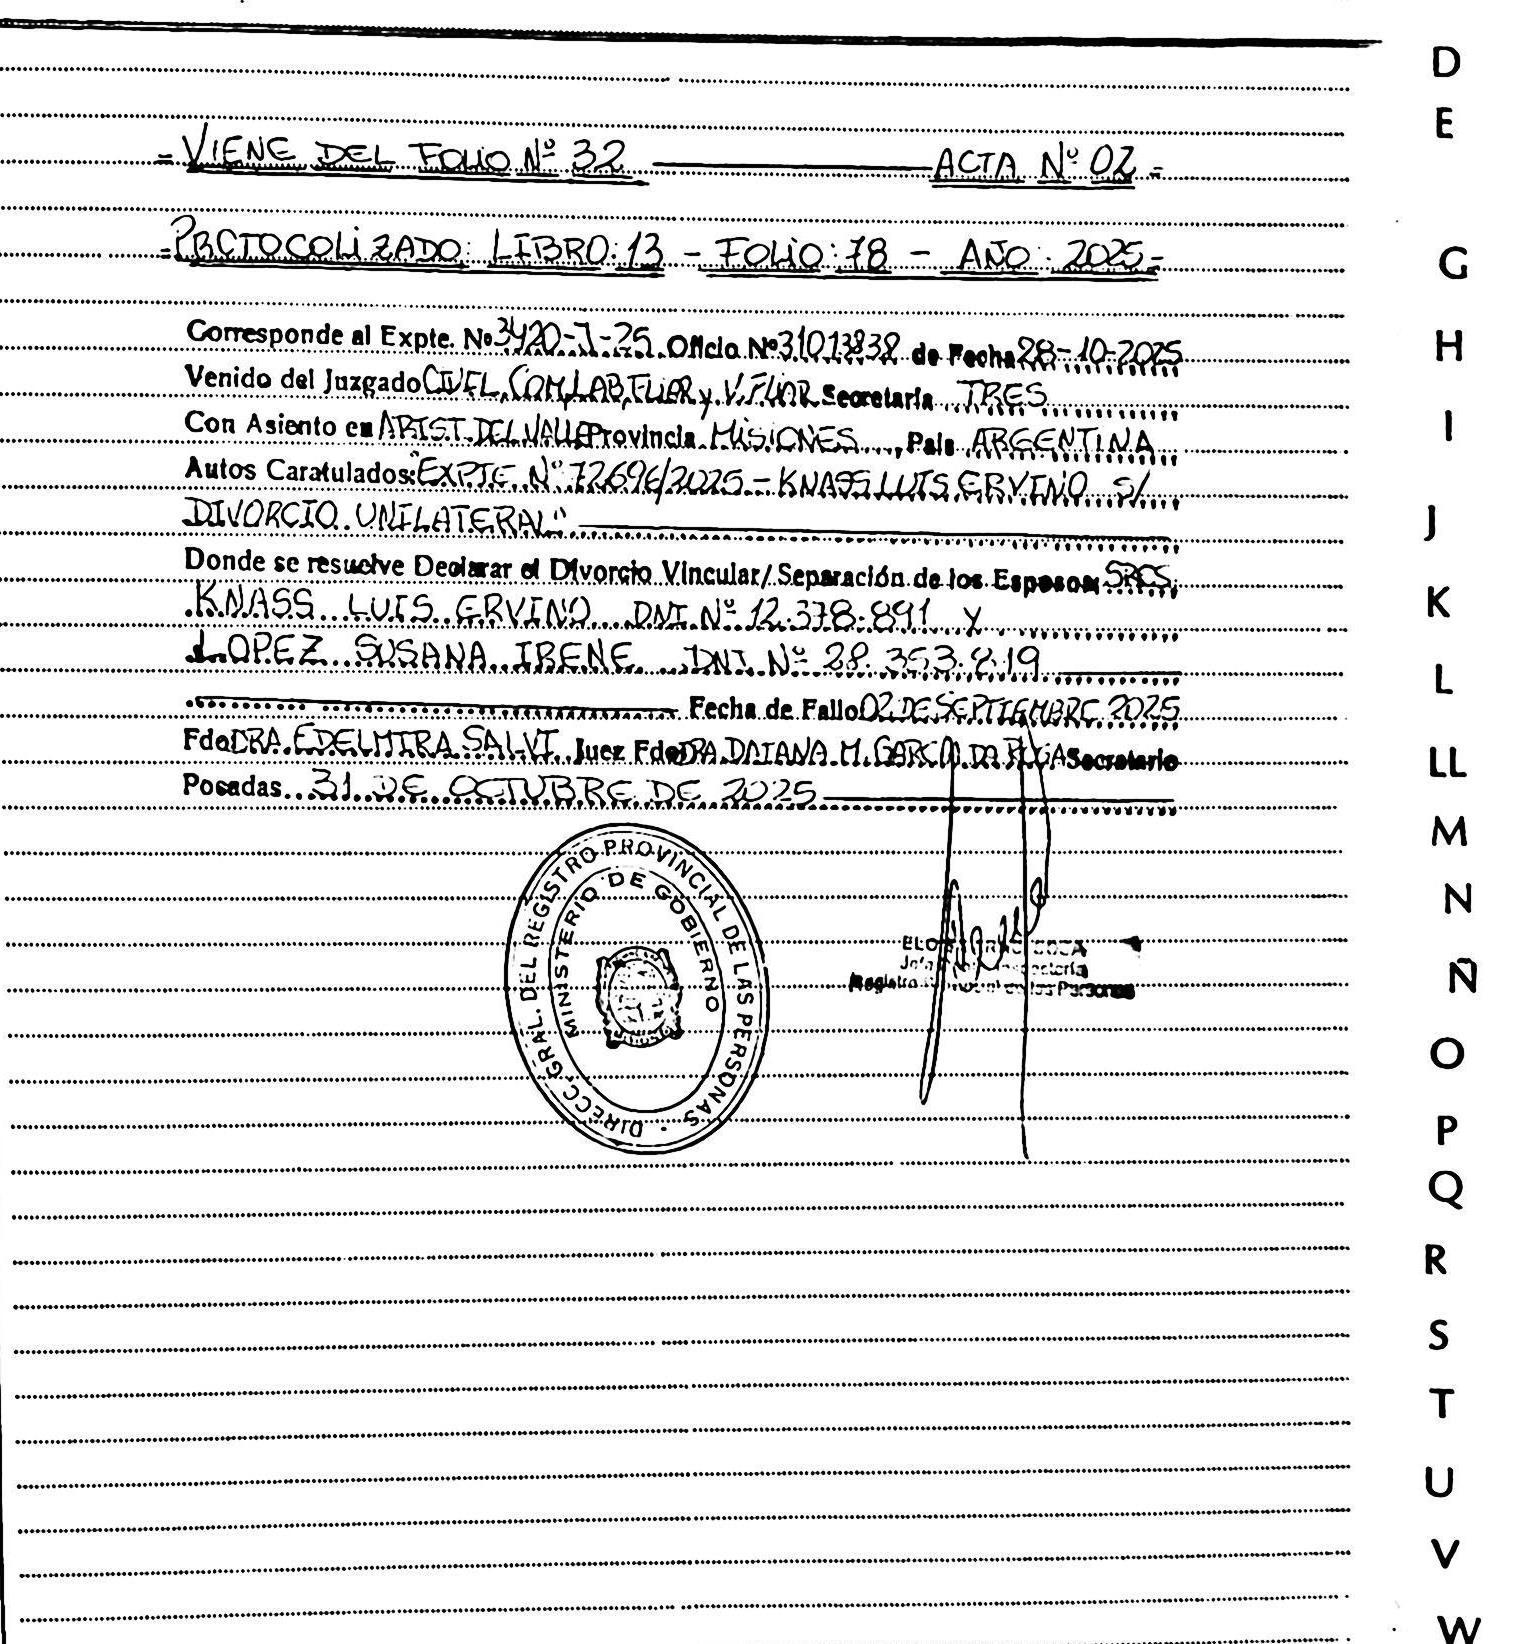 = VIENE DEL FOLIO Nº 32 ACTA Nº 02 =
= PROTOCOLIZADO: LIBRO: 13 - FOLIO: 78 - AÑO: 2025 =
Corresponde al Expte. Nº 3420-J-25 Oficio Nº 31013838 de Fecha 28-10-2025
Venido del Juzgado CIVEL, COM, LAB, FLIAR y V. FLIAR Secretaría TRES
Con Asiento en ARIST. DEL VALLE Provincia MISIONES, País ARGENTINA
Autos Caratulados: "EXPTE Nº 72696/2025 - KNASS LUIS ERVINO S/
DIVORCIO UNILATERAL"
Donde se resuelve Declarar el Divorcio Vincular/Separación de los Esposos: SRES
KNASS LUIS ERVINO DNI Nº 12.378.891 Y
LOPEZ SUSANA IRENE DNI Nº 28.353.819
Fecha de Fallo 02 DE SEPTIEMBRE 2025
Fdo DRA. EDELMIRA SALVI Juez Fdo DRA DAIANA M. GARCIA DA Secretario
Posadas 31 DE OCTUBRE DE 2025
DIRECC. GRAL. DEL REGISTRO PROVINCIAL DE LAS PERSONAS
MINISTERIO DE GOBIERNO
Registro de las Personas
D
E
G
H
I
J
K
L
LL
M
N
Ñ
O
P
Q
R
S
T
U
V
W